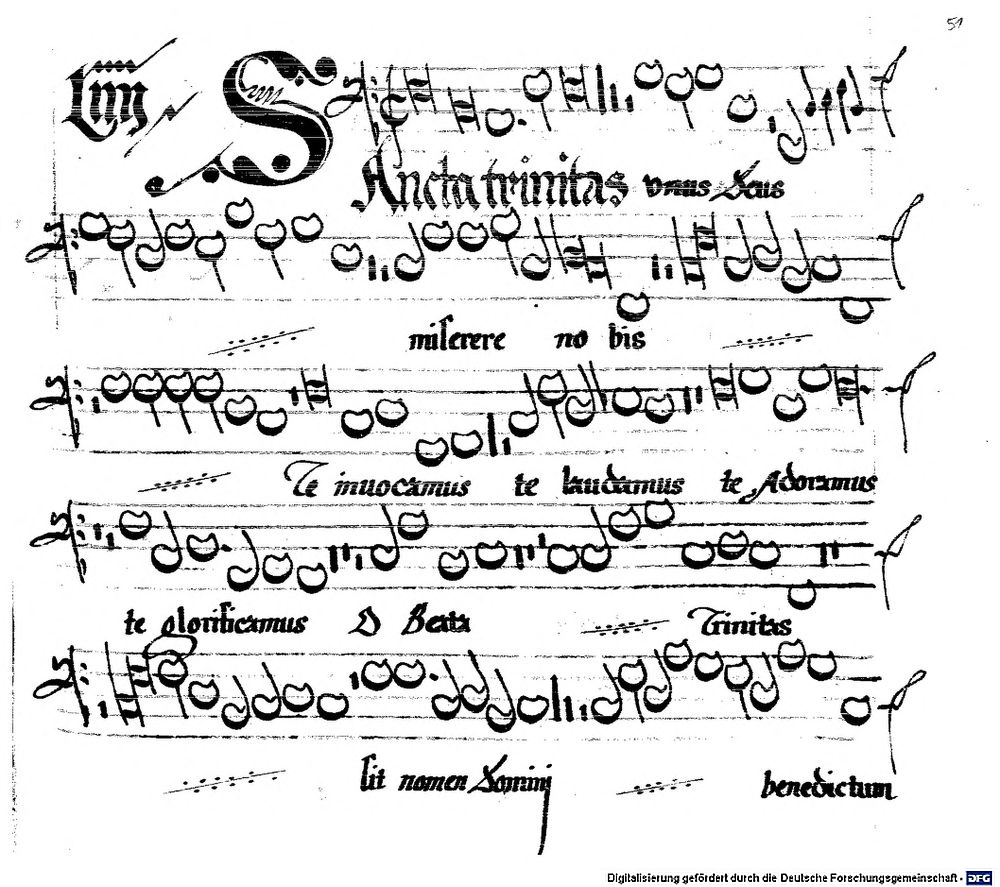 51
Liiij
SAncta trinitas vnus Deus
miserere no bis
Te inuocamus te laudamus te Adoramus
te glorificamus O Beata Trinitas
sit nomen Dominj benedictum
Digitalisierung gefördert durch die Deutsche Forschungsgemeinschaft - DFG